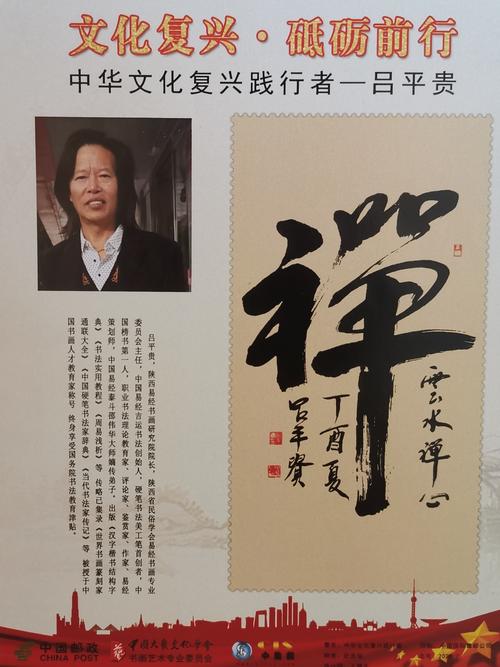 文化复兴·砥砺前行
中华文化复兴践行者—吕平贵
吕平贵，陕西易经书画研究院院长，陕西省民俗学会易经书画专业
委员会主任，中国易经吉运书法创始人，硬笔书法美工笔首创者 中
国榜书第一人，职业书法理论教育家、评论家、鉴赏家、作家、易经
策划师，中国易经泰斗邵伟华大师嫡传弟子。出版《汉字楷书结构字
典》《书法实用教程》《周易浅析》等 传略已集录《世界书画篆刻家
通联大全》《中国硬笔书法家辞典》《当代书法家传记》等 被授于中
国书画人才教育家称号 终身享受国务院书法教育津贴。
禪
雲水禅心
丁酉夏
吕平贵
中国邮政
CHINA POST
中国大众文化学会
书画艺术专业委员会